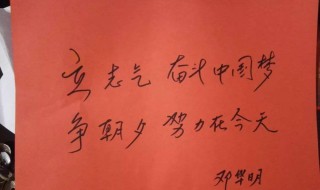 立志气 奋斗中国梦
争朝夕 努力在今天
邓华明